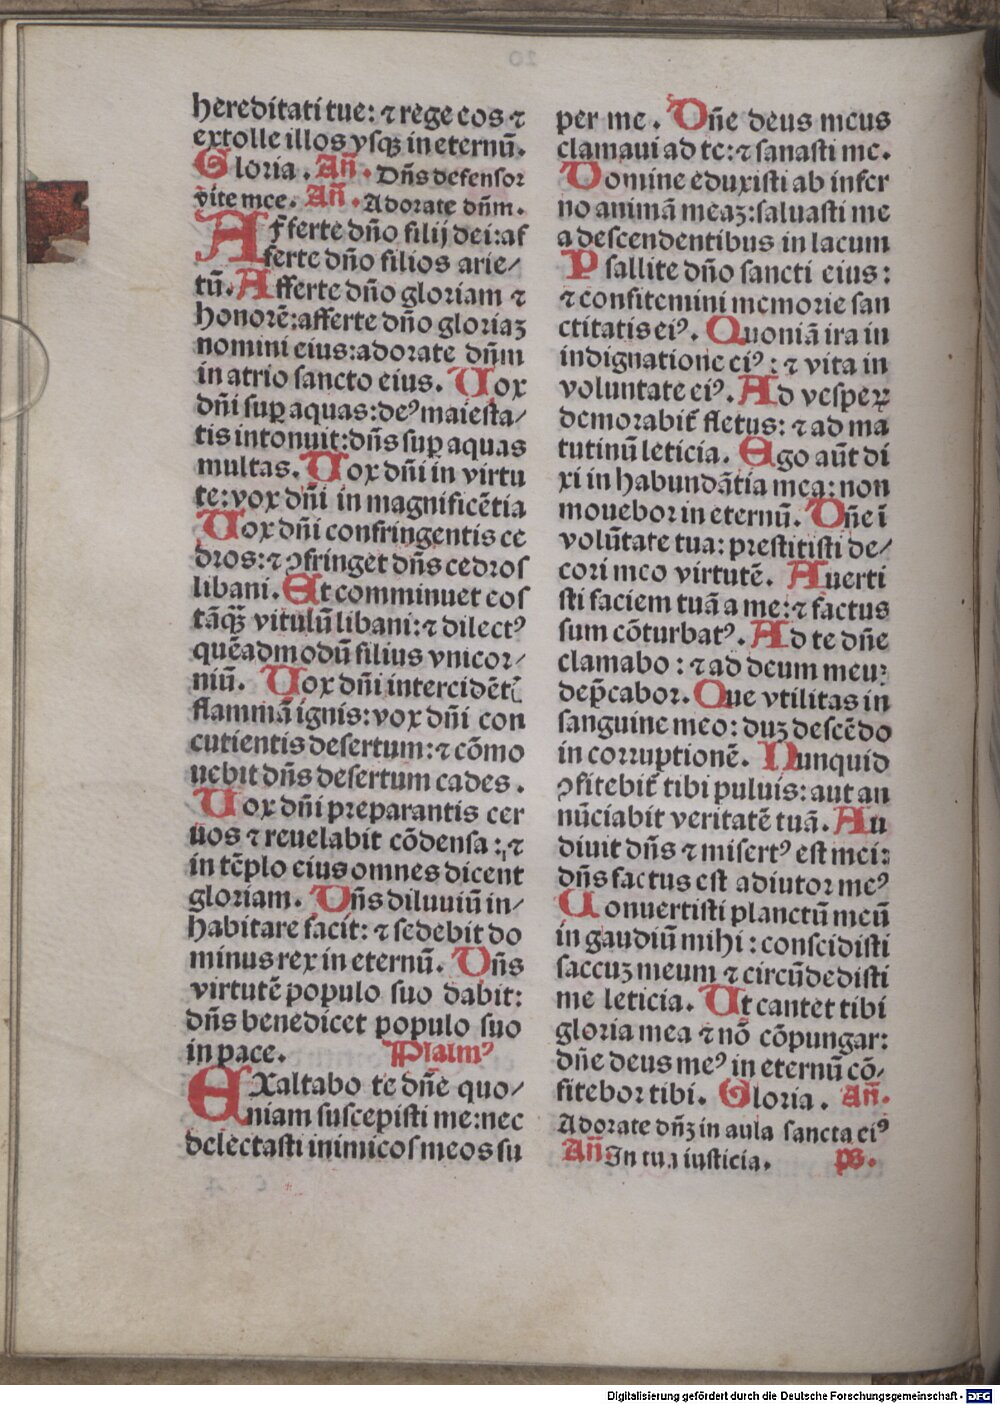 hereditati tue: ⁊ rege eos ⁊
extolle illos vsqꝫ in eternũ.
Gloria. Añ. Dñs defensor
vite mee. Añ. Adorate dñm.
Afferte dño filij dei: af
ferte dño filios arie/
tũ. Afferte dño gloriam ⁊
honorẽ: afferte dño gloriaꝫ
nomini eius: adorate dñm
in atrio sancto eius. Uox
dñi suꝑ aquas: deꝰ maiesta/
tis intonuit: dñs suꝑ aquas
multas. Uox dñi in virtu
te: vox dñi in magnificẽtia
Uox dñi confringentis ce
dros: ⁊ ꝯfringet dñs cedros
libani. Et comminuet eos
tãqꝫ vitulũ libani: ⁊ dilectꝰ
quẽadmodũ filius vnicor/
niũ. Uox dñi intercidẽtꝭ
flammã ignis: vox dñi con
cutientis desertum: ⁊ cõmo
uebit dñs desertum cades.
Uox dñi preparantis cer
uos ⁊ reuelabit cõdensa: ⁊
in tẽplo eius omnes dicent
gloriam. Dñs diluuiũ in/
habitare facit: ⁊ sedebit do
minus rex in eternũ. Dñs
virtutẽ populo suo dabit:
dñs benedicet populo suo
in pace. Psalmꝰ
EXaltabo te dñe quo/
niam suscepisti me: nec
delectasti inimicos meos su
per me. Dñe deus meus
clamaui ad te: ⁊ sanasti me.
Domine eduxisti ab infer
no animã meaꝫ: saluasti me
a descendentibus in lacum
Psallite dño sancti eius:
⁊ confitemini memorie san
ctitatis eiꝰ. Quoniã ira in
indignatione eiꝰ: ⁊ vita in
voluntate eiꝰ. Ad vesperꝝ
demorabit̃ fletus: ⁊ ad ma
tutinũ leticia. Ego aũt di
xi in habundãtia mea: non
mouebor in eternũ. Dñe ĩ
volũtate tua: prestitisti de/
cori meo virtutẽ. Auerti
sti faciem tuã a me: ⁊ factus
sum cõturbatꝰ. Ad te dñe
clamabo: ⁊ ad deum meuꝫ
dep̃cabor. Que vtilitas in
sanguine meo: duꝫ descẽdo
in corruptionẽ. Nunquid
ꝯfitebit̃ tibi puluis: aut an
nũciabit veritatẽ tuã. Au
diuit dñs ⁊ misertꝰ est mei:
dñs factus est adiutor meꝰ
Conuertisti planctũ meũ
in gaudiũ mihi: conscidisti
saccuꝫ meum ⁊ circũdedisti
me leticia. Ut cantet tibi
gloria mea ⁊ nõ cõpungar:
dñe deus meꝰ in eternũ cõ/
fitebor tibi. Gloria. Añ.
Adorate dñꝫ in aula sancta eiꝰ
Añ In tua iusticia. ps.
Digitalisierung gefördert durch die Deutsche Forschungsgemeinschaft - DFG